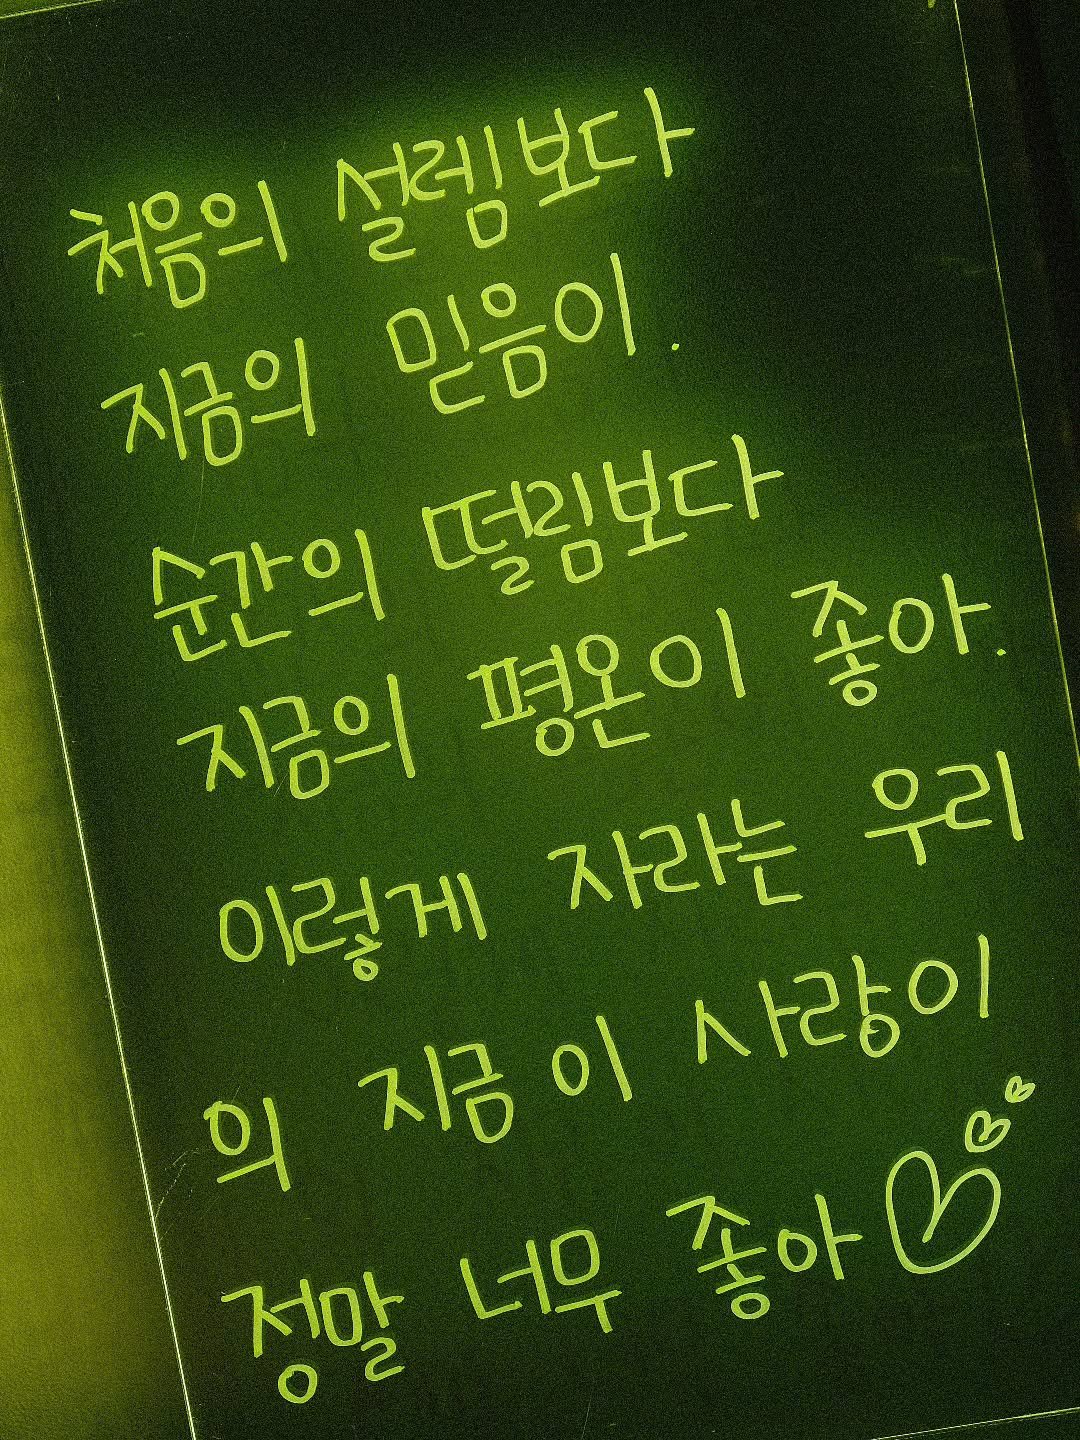 처음의 설렘보다
지금의 믿음이.
순간의 떨림보다
지금의 평온이 좋아.
이렇게 자라는 우리
의 지금 이 사랑이
정말 너무 좋아